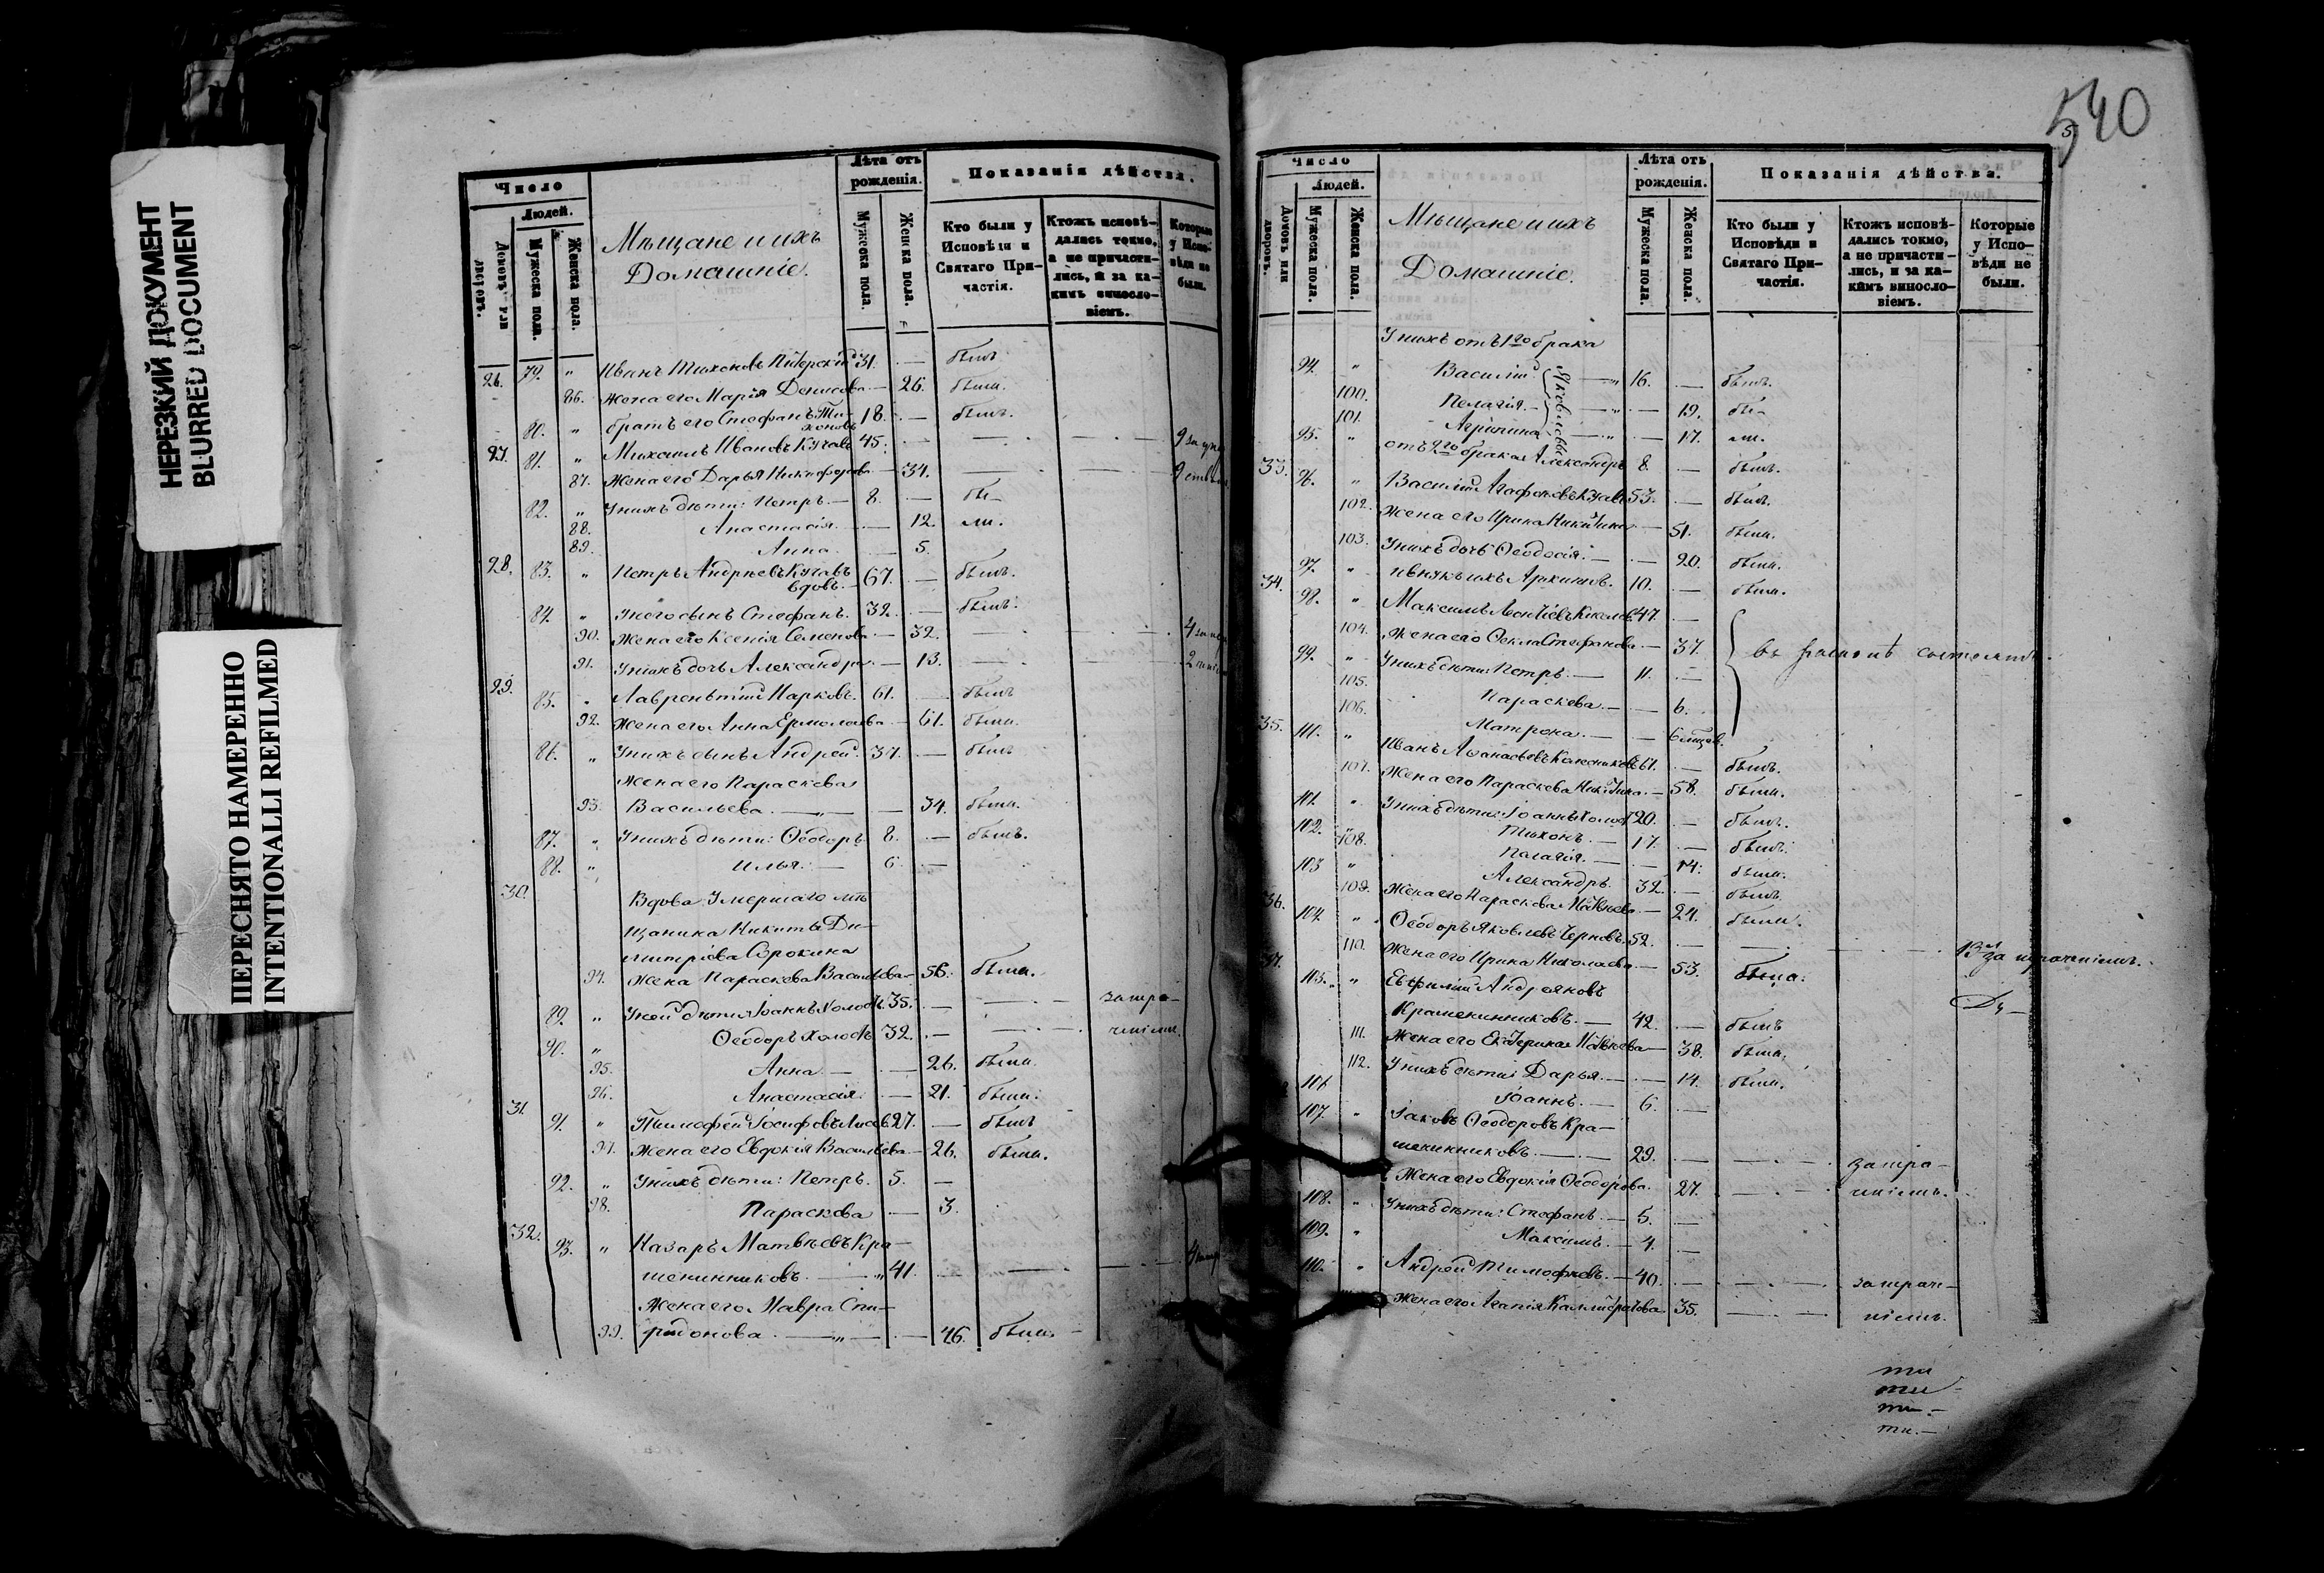 НЕРЕЗКИЙ ДОКУМЕНТ
BLURRED DOCUMENT
ПЕРЕСНЯТО НАМЕРЕННО
INTENTIONALLI REFILMED
Число
Людей.
Мужеска пола.
Женска пола.
Мѣщане и ихъ
Домашніе.
Лѣта отъ рожденія.
Мужеска пола.
Женска пола.
Показанія дѣйства.
Кто были у Исповѣди и Святаго Причастія.
Ктожъ исповѣдались токмо, а не причастились, и за какимъ винословіемъ.
Которые у Исповѣди не были.
26. 79. " Иванъ Тихоновъ 31. — былъ
86. Жена его Марія Денисова — 26. была.
80. " братъ его Стефанъ Тихоновъ 18. — былъ.
27. 81. " Михаилъ Ивановъ 45. —
87. Жена его Дарья Никифорова — 34.
82. " У нихъ дѣти: Петръ. — 8. — бы-
88. Анастасія. — 12. ли.
89. Анна. — 5.
28. 83. " Петръ Андреевъ вдовъ. — 67. — былъ.
84. " У него сынъ Стефанъ. 32. — былъ.
90. Жена его Ксенія Семенова — 32.
91. У нихъ дочь Александра. — 13.
29. 85. " Лаврентій Марковъ. 61. — былъ
92. Жена его Анна Ермолаева — 61. была.
86. " У нихъ сынъ Андрей. 37. — былъ
Жена его Параскева
93. Васильева. — 34. была.
87. " У нихъ дѣти: Ѳеодоръ 8. — былъ.
88. " Илья. — 6. —
30. Вдова Умершаго мѣ-
щанина Никиты Ди-
митріева Сорокина
94. Жена Параскева Васильева — 56. была.
89. " У ней дѣти: Іоаннъ холостъ 35. —
90. " Ѳеодоръ холостъ 32. —
95. Анна — 26. была.
96. Анастасія. — 21. была.
31. 91. " Тимофей Іосифовъ 27. — былъ
97. Жена его Евдокія Васильева — 26. была.
92. " У нихъ дѣти: Петръ. 5. —
98. Параскева — 3.
32. 93. " Назаръ Матвѣевъ Кра-
шенинниковъ. — " 41. —
Жена его Мавра Спи-
99. ридонова. — " — 46. была
540
Число
Людей.
Домовъ или дворовъ.
Мужеска пола.
Женска пола.
Мѣщане и ихъ
Домашніе.
Лѣта отъ рожденія.
Мужеска пола.
Женска пола.
Показанія дѣйства.
Кто были у Исповѣди и Святаго Причастія.
Ктожъ исповѣдались токмо, а не причастились, и за какимъ винословіемъ.
Которые у Исповѣди не были.
У нихъ отъ 1го брака
94. " Василій Яковлевы — 16. — былъ.
100. Пелагія. — 19. бы-
101. Агрипина — 17. ли.
95. " отъ 2го брака Александръ 8. — былъ.
33. 96. " Василій Агафоновъ 53. — былъ.
102. Жена его Ирина Никитина — 51. была.
103. У нихъ дочь Ѳеодосія. — 20. была.
97. " и внукъ ихъ Архиппъ. 10. — былъ.
34. 98. " Максимъ Леонтіевъ 47. —
104. Жена его Ѳекла Стефанова — 37.
99. " У нихъ дѣти: Петръ. — 11. —
105. Параскева. — 6.
106. Матрона. —
35. " Иванъ Аѳанасьевъ 61. — былъ.
107. Жена его Параскева Никитина. — 58. была.
101. " У нихъ дѣти: Іоаннъ холостъ 20. — былъ.
102. " Тихонъ. — 17. — былъ.
108. Палагія. — 14. была.
103 " Александръ. 32. — былъ.
109. Жена его Параскева Матвѣева — 24. была.
36. 104. " Ѳеодоръ Яковлевъ Черновъ. 52. —
110. Жена его Ирина Николаева — 53. была.
37. " Евфимій Андреяновъ
Крашенинниковъ. — 42. — былъ
111. Жена его Екатерина Матвѣева — 38. была.
112. У нихъ дѣти: Дарья. — 14. была.
Іоаннъ. — 6. —
107. " Іаковъ Ѳеодоровъ Кра-
шенинниковъ. — 29. —
Жена его Евдокія Ѳеодорова. 27.
108. " У нихъ дѣти: Стефанъ. — 5. —
109. " Максимъ. — 4. —
110. " Андрей Тимофѣевъ. — 40. —
Жена его Агапія 35.